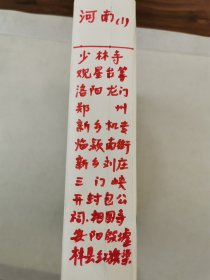 河南(1)
少林寺
观星台等
洛阳龙门
郑州
新乡机专
临颍南街
新乡刘庄
三门峡
开封包公
祠.相国寺
安阳殷墟
林县红旗渠